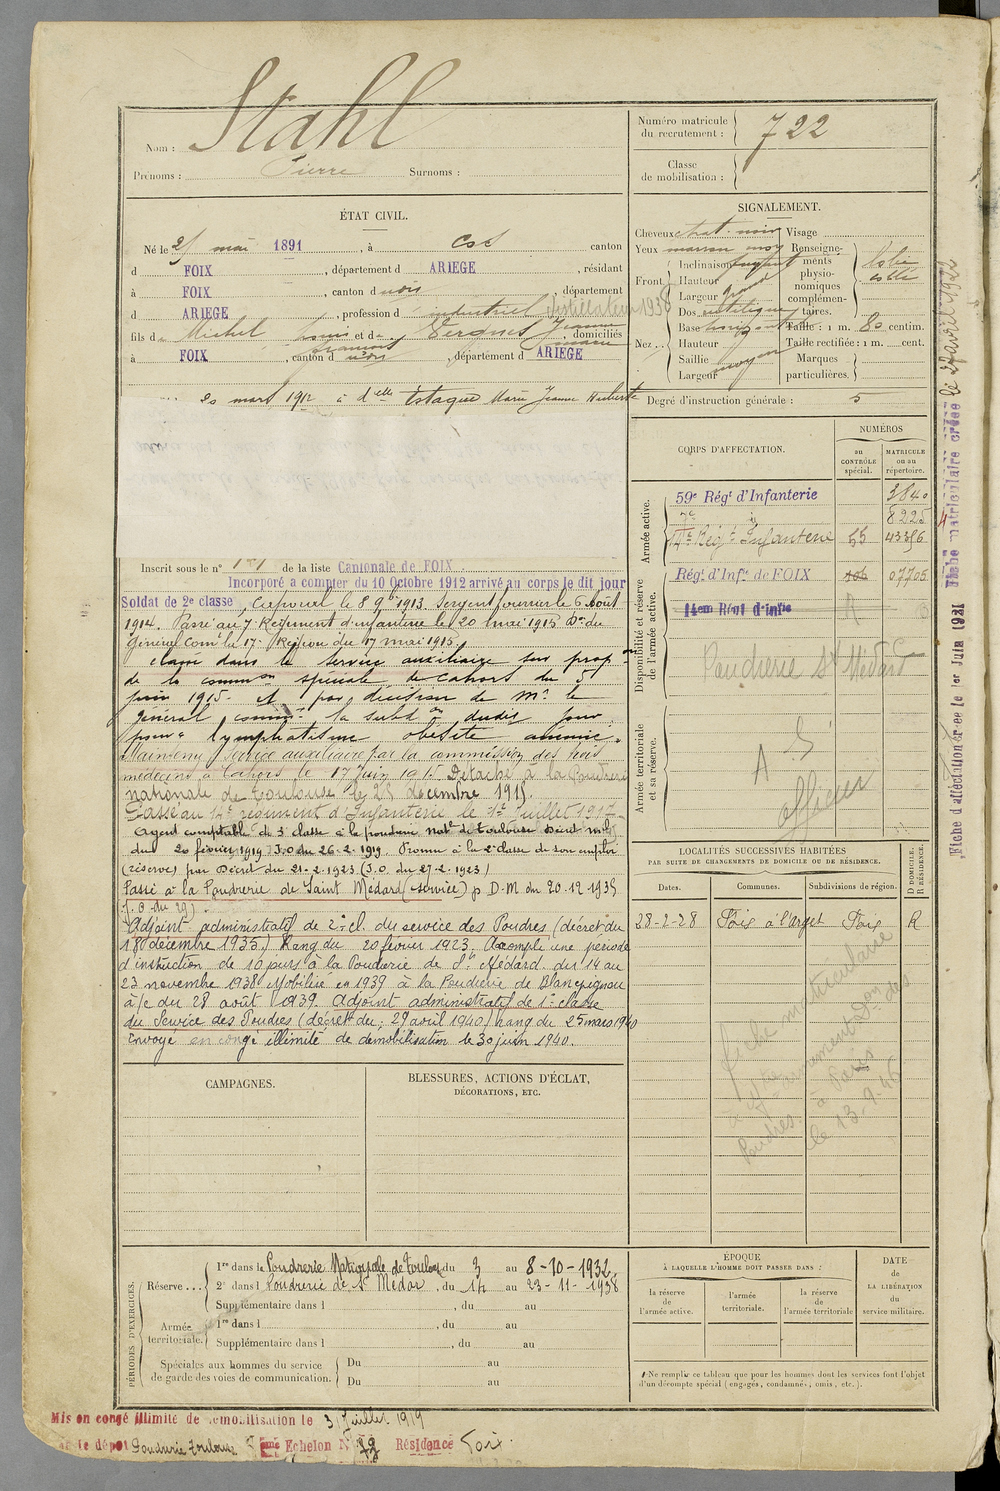 Nom : Stahl
Prénoms : Pierre Surnoms :
Numéro matricule du recrutement : 722
Classe de mobilisation :
ÉTAT CIVIL.
Né le 25 mai 1891, à Cos canton
d FOIX, département d ARIEGE, résidant
à FOIX, canton dudis, département
d ARIEGE, profession d industriel Distillateur 1938
fils de Michel Louis François et de Vergnes Jeanne Marie domiciliés
à FOIX, canton dudis, département d ARIEGE
20 mars 1912 à d'elle Estaque Marie Jeanne
Inscrit sous le n° 131 de la liste Cantonale de FOIX.
Incorporé a compter du 10 Octobre 1912 arrivé au corps le dit jour
Soldat de 2e classe, Caporal le 8 9bre 1913. Sergent fourrier le 6 août
1914. Passé au 7e Régiment d'infanterie le 20 mai 1915 Don du
Général Comt la 17e Région du 17 mai 1915.
Classé dans le service auxiliaire sur propon
de la common spéciale de Cahors du 5
juin 1915 et par décision de Mr le
Général commt la subdon dudit jour
pour " lymphatisme obésité anémie "
Maintenu service auxiliaire par la commission des trois
médecins à Cahors le 17 juin 1915 Détaché à la Poudrerie
nationale de Toulouse le 25 décembre 1915.
Passé au 14e régiment d'Infanterie le 1er juillet 1917
Agent comptable de 3e classe à la poudrerie natle de Toulouse Décret
du 20 février 1919 J.O du 26-2-1919. Promu à la 2e classe de son emploi
(réserve) par Décret du 21-2-1923 (J.O. du 27-2-1923)
Passé à la Poudrerie de Saint Médard (service) p D.M du 20 12 1935
(J.O. du 29)
Adjoint administratif de 2e cl. du service des Poudres (décret du
18 décembre 1935.) Rang du 20 février 1923. Accompli une période
d'instruction de 10 jours à la Poudrerie de St Médard du 14 au
23 novembre 1938 Mobilisé en 1939 à la Poudrerie de Blancpignon
à/c du 28 août 1939. Adjoint administratif de 1e classe
du Service des Poudres (décret du 29 avril 1940) rang du 25 mars 1940
Envoyé en congé illimité de démobilisation le 30 juin 1940.
SIGNALEMENT.
Cheveux chat. noir Visage
Yeux marron moy
Front Inclinaison fuyant
Hauteur
Largeur grand
Nez Dos rectiligne
Base horizont
Hauteur
Saillie
Largeur moyen
Renseignements physionomiques complémentaires.
Taille : 1 m. 80 centim.
Taille rectifiée : 1 m. cent.
Marques particulières.
Degré d'instruction générale : 5
CORPS D'AFFECTATION.
NUMÉROS
au CONTRÔLE spécial.
MATRICULE ou au répertoire.
Armée active.
59e Régt d'Infanterie 3840
7e d° 8225
14e Régt Infanterie 55 43356
Disponibilité et réserve de l'armée active.
Régt d'Infie de FOIX 07705
14em Régt d'infie R
Poudrerie St Médard
Armée territoriale et sa réserve.
A S
officier
LOCALITÉS SUCCESSIVES HABITÉES
PAR SUITE DE CHANGEMENTS DE DOMICILE OU DE RÉSIDENCE.
Dates. Communes. Subdivisions de région. D DOMICILE. R RÉSIDENCE.
28-2-28 Foix à l'Arget Foix R
fiche matriculaire
Poudres à Paris
le 13-9-46
CAMPAGNES.
BLESSURES, ACTIONS D'ÉCLAT,
DÉCORATIONS, ETC.
PÉRIODES D'EXERCICES.
Réserve...
1re dans la Poudrerie Nationale de Toulouse, du 3 au 8-10-1932.
2e dans l Poudrerie de St Médar, du 14 au 23-11-1938
Supplémentaire dans l , du au
Armée territoriale.
1re dans l , du au
Supplémentaire dans l , du au
Spéciales aux hommes du service de garde des voies de communication.
Du au
Du au
ÉPOQUE
À LAQUELLE L'HOMME DOIT PASSER DANS :
la réserve de l'armée active.
l'armée territoriale.
la réserve de l'armée territoriale
DATE de LA LIBÉRATION du service militaire.
Ne remplir ce tableau que pour les hommes dont les services font l'objet
d'un décompte spécial (engagés, condamnés, omis, etc.).
Fiche d'affectation créée le 1er Juin 1931
Fiche matriculaire créée le
Mis en congé illimité de démobilisation le 31 Juillet 1919
par le dépot Poudrerie Toulouse eme Echelon N° 79 Résidence Foix.